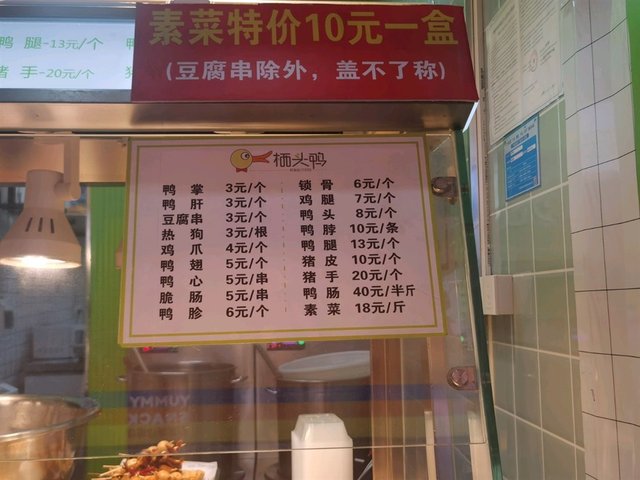 素菜特价10元一盒
(豆腐串除外，盖不了称)
鸭 腿-13元/个
猪 手-20元/个
栖头鸭
鸭 掌 3元/个
鸭 肝 3元/个
豆腐串 3元/个
热 狗 3元/根
鸡 爪 4元/个
鸭 翅 5元/个
鸭 心 5元/串
脆 肠 5元/串
鸭 胗 6元/个
锁 骨 6元/个
鸡 腿 7元/个
鸭 头 8元/个
鸭 脖 10元/条
鸭 腿 13元/个
猪 皮 10元/个
猪 手 20元/个
鸭 肠 40元/半斤
素 菜 18元/斤
YUMMY
SNACK